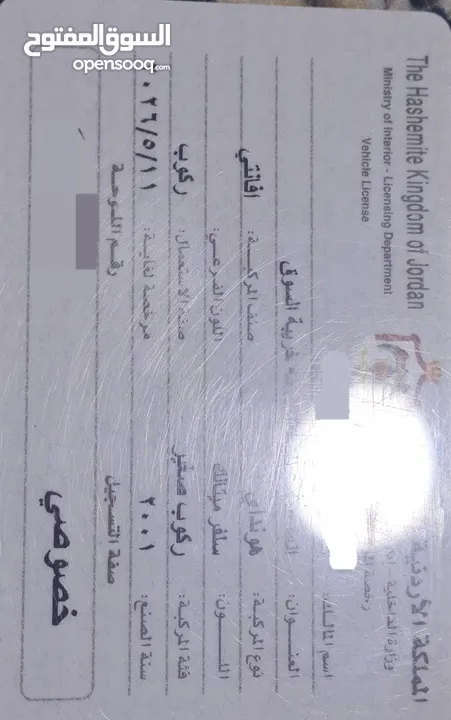 السوق المفتوح
opensooq.com
The Hashemite Kingdom of Jordan
المملكة الأردنية
Ministry of Interior - Licensing Department
وزارة الداخلية
Vehicle License
رخصة
اسم المالك:
العنوان: غربية السوق
نوع المركبة: هونداي صنف المركبة: افانتي
اللون: سلفر ميتالك اللون الفرعي:
فئة المركبة: ركوب صغير صفة الاستعمال: ركوب
سنة الصنع: ٢٠٠١ مرخصة لغاية: ٠٢٦/٥/١١
صفة التسجيل رقم اللوحة
خصوصي